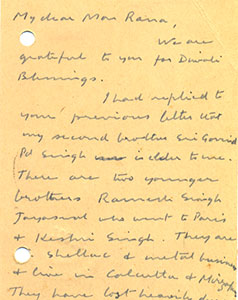 My dear Mon Rana,
We are
grateful to you for Diwali
Blessings.
I had replied to
your previous letter that
my second brother Sri Govind
Pd Singh is elder to me.
There are two younger
brothers Ramesh Singh
Jayaswal who went to Paris
& Keshri Singh. They are
in shellac & metal business
& live in Calcutta &
They have lost heavily